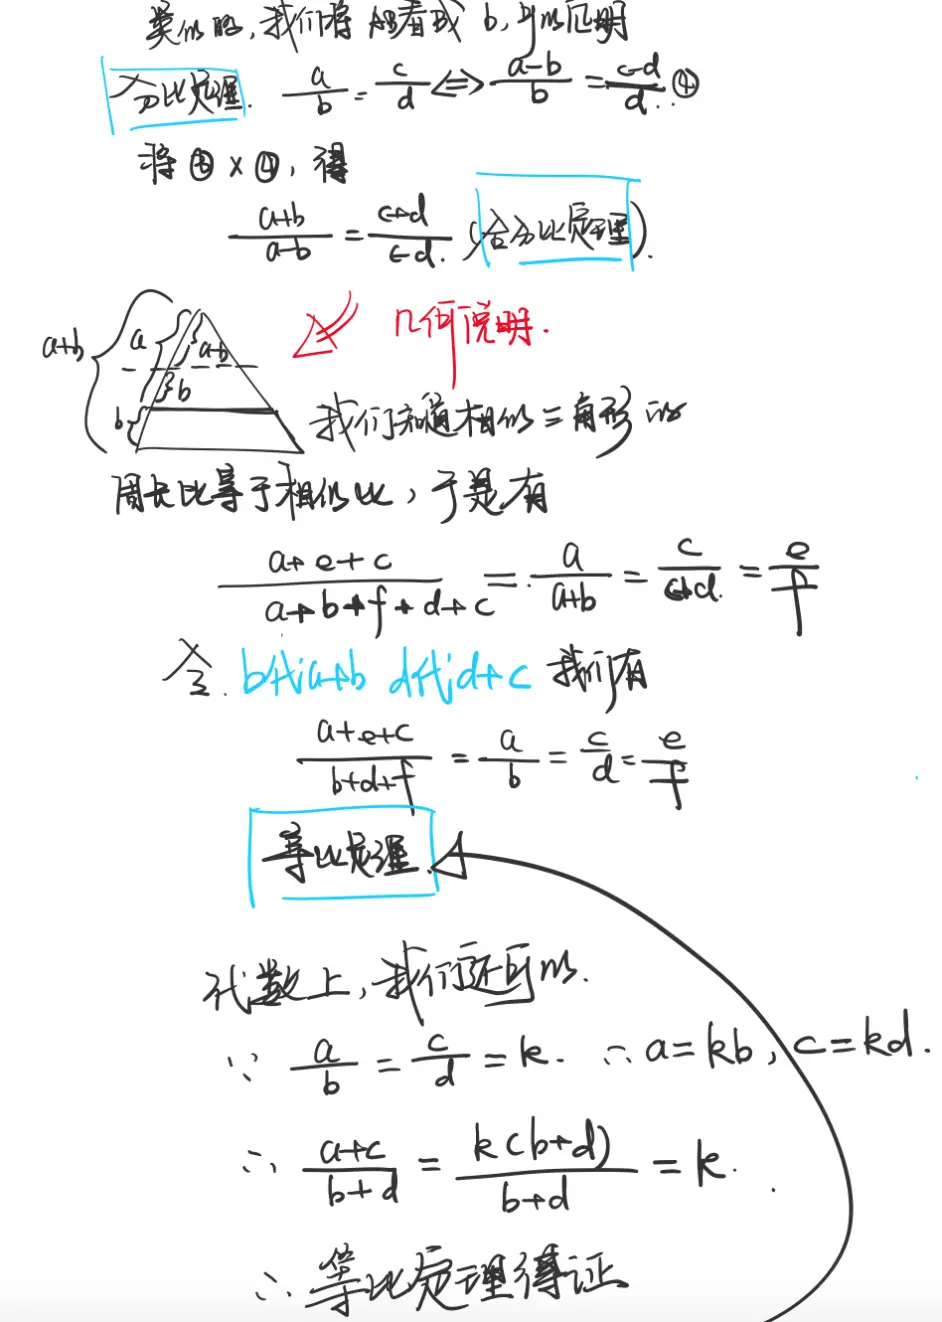 类似的,我们将AB看成b,可以证明
分比定理. a/b = c/d ⟺ (a-b)/b = (c-d)/d. ④
将③×④,得
(a+b)/(a-b) = (c+d)/(c-d). (合分比定理).
a+b a a-b b b
几何说明.
我们知道相似三角形的
周长比等于相似比,于是有
(a+e+c)/(a+b+f+d+c) = a/(a+b) = c/(c+d) = e/f
令 b代a+b d代d+c 我们有
(a+e+c)/(b+d+f) = a/b = c/d = e/f
等比定理.
代数上,我们还可以.
∵ a/b = c/d = k. ∴ a=kb, c=kd.
∴ (a+c)/(b+d) = k(b+d)/(b+d) = k.
∴ 等比定理得证